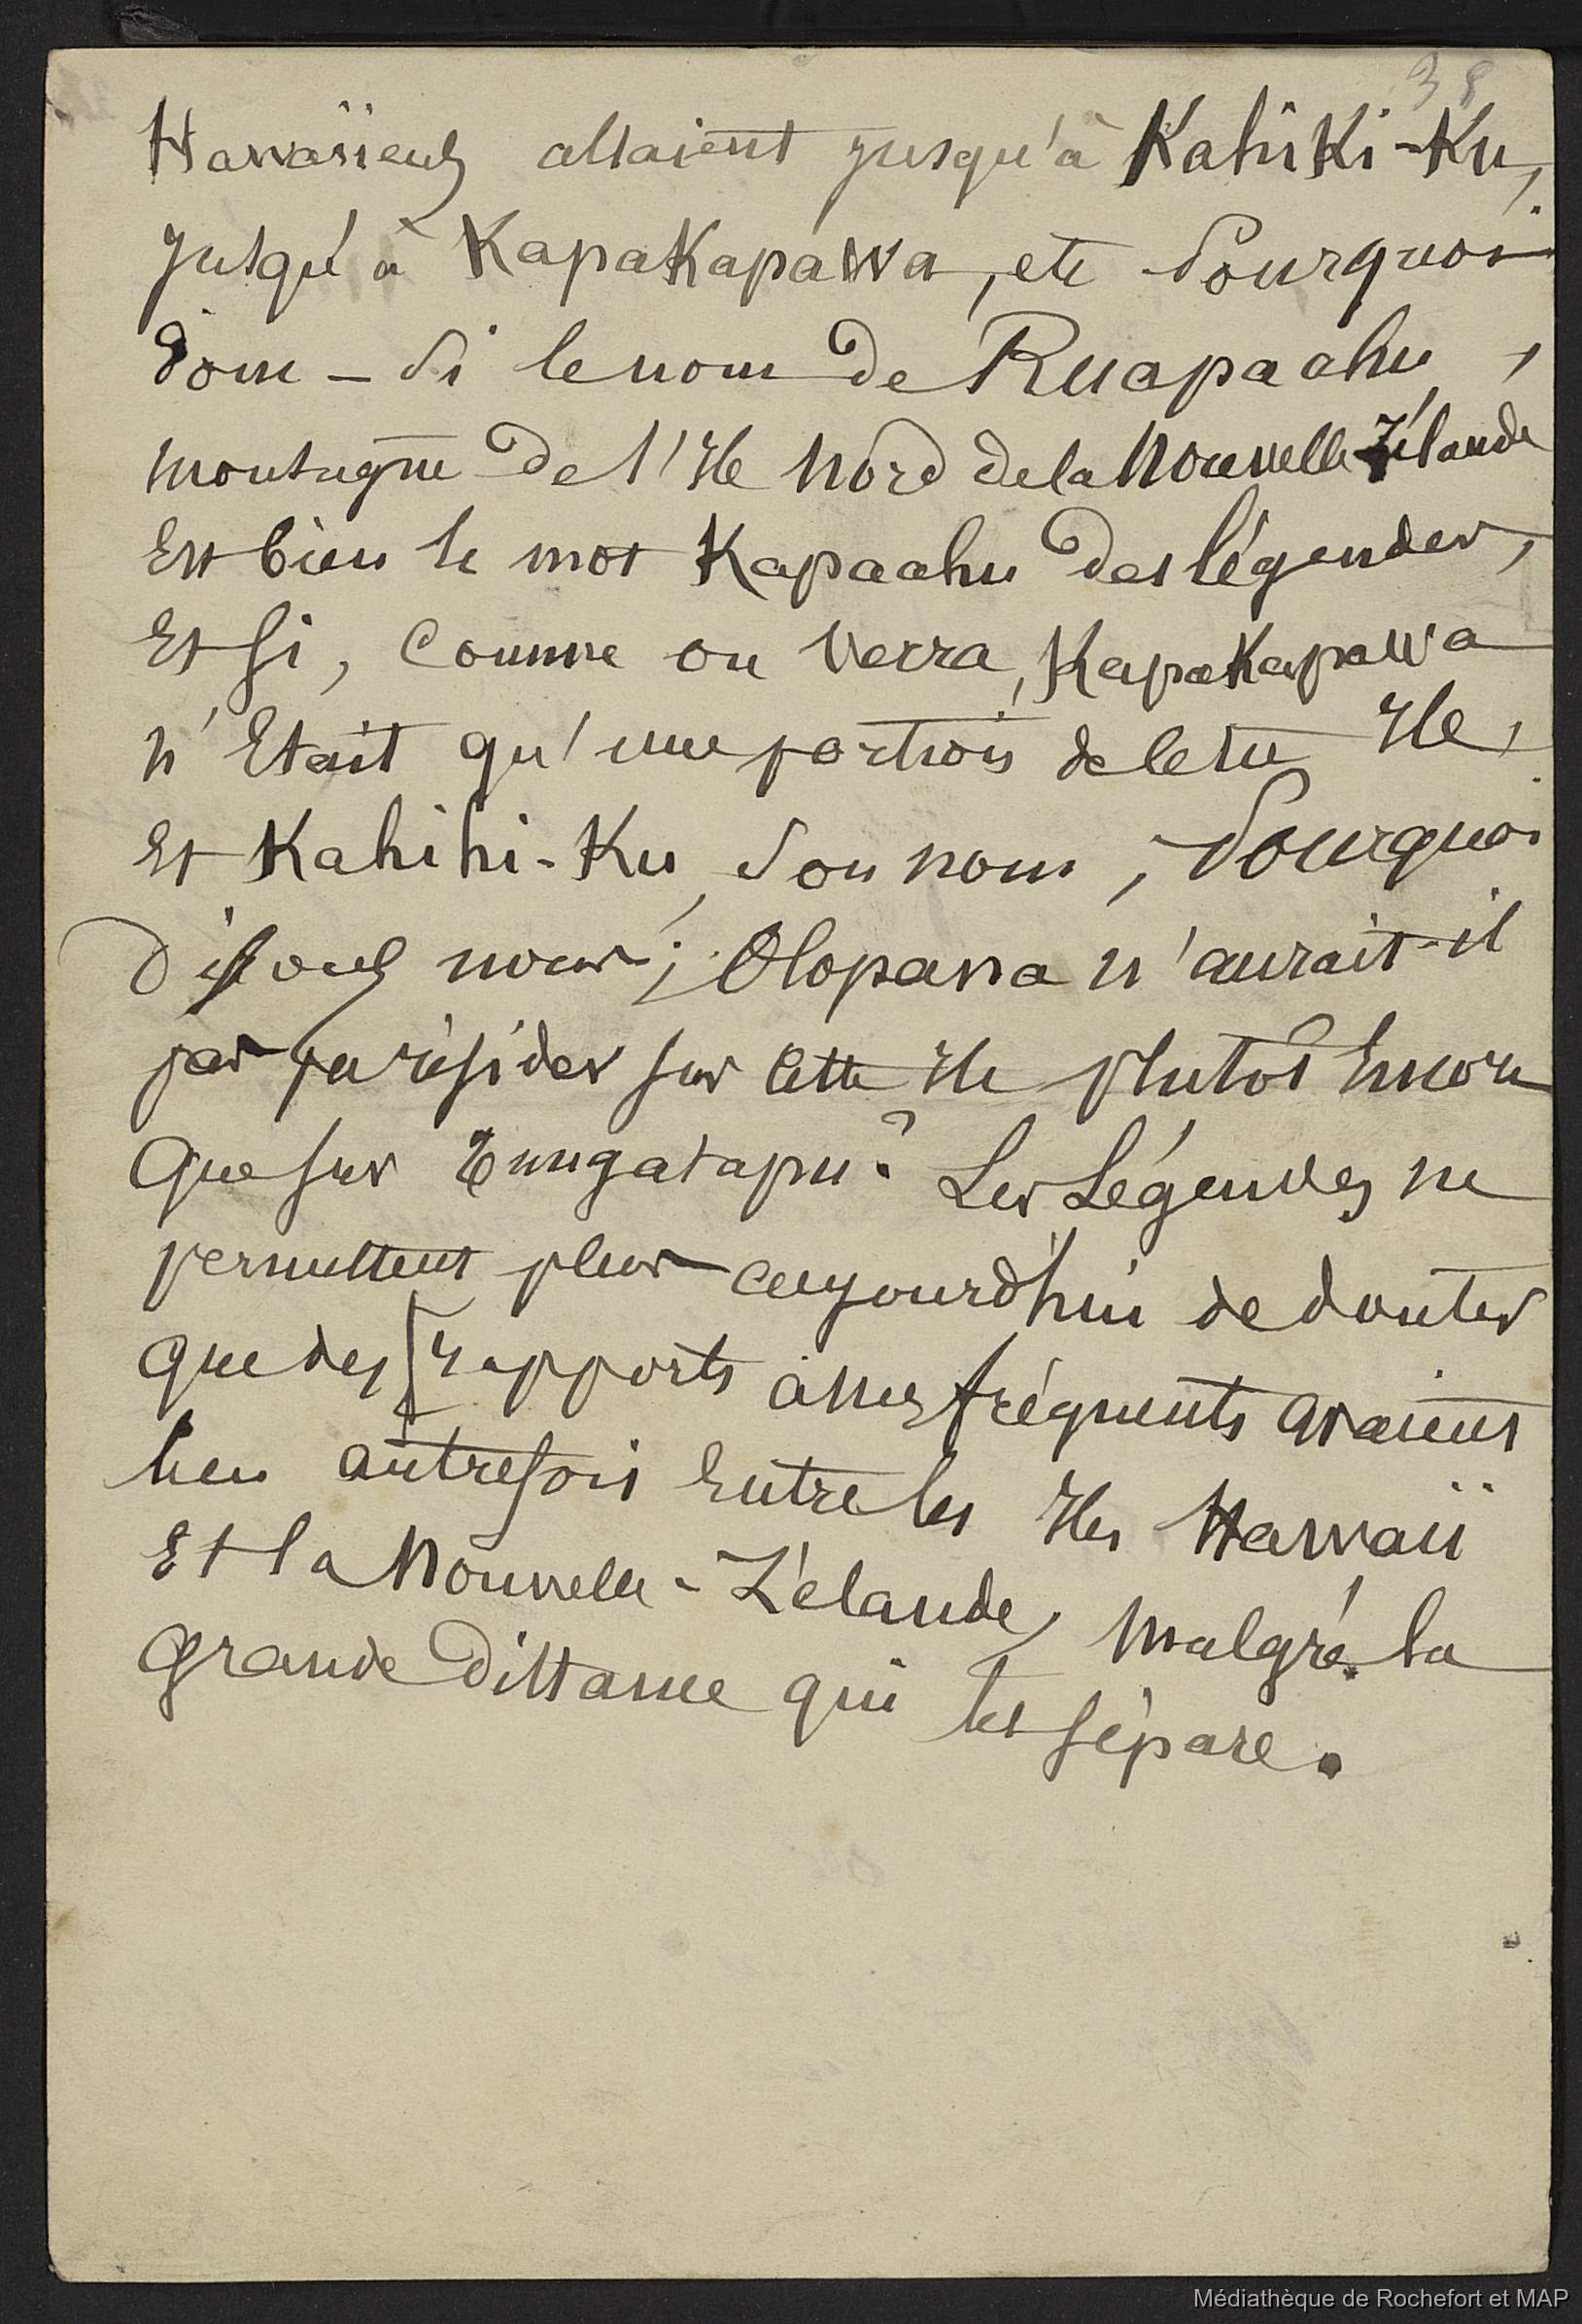 38
Hawaïiens allaient jusqu'à Kahiki-Ku,
jusqu'à Kapakapawa, etc. Pourquoi
donc - si le nom de Ruapaahu,
montagne de l'Ile Nord de la Nouvelle Zélande
Est bien le mot Kapaahu des légendes,
Et si, Comme on verra, Kapakapawa
n'Etait qu'une portion de cette Ile,
Et Kahiki-Ku, Son nom, Pourquoi
disons nous, Olopana n'aurait-il
pas pu résider sur cette Ile plutôt Encore
que sur Tungatapu? Les Légendes ne
permettent plus aujourd'hui de douter
que des [rapports assez fréquents avaient
lieu autrefois Entre les Iles Hawaïi
Et la Nouvelle-Zélande, malgré la
grande distance qui les sépare.
Médiathèque de Rochefort et MAP